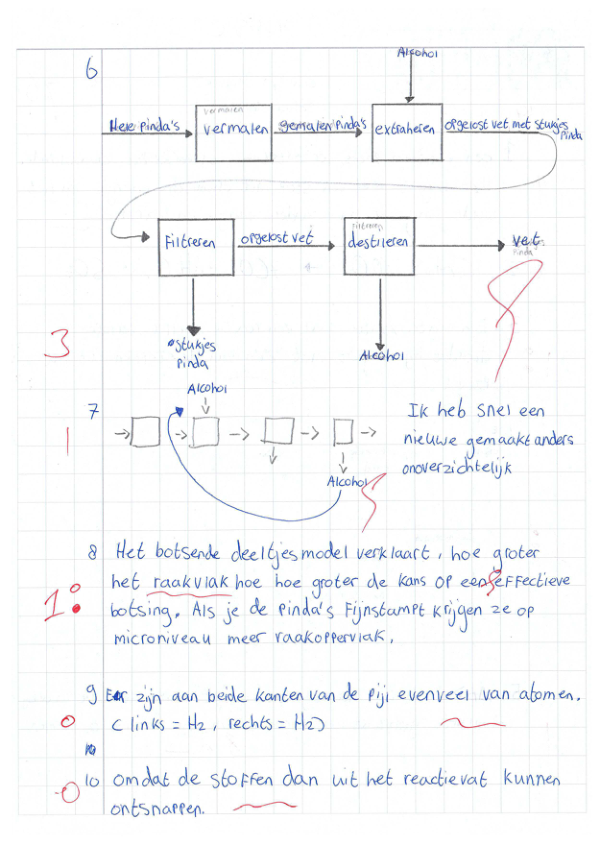 6
Alcohol
Hele pinda's
vermalen
vermalen
gemalen pinda's
extraheren
opgelost vet met stukjes
pinda
Filtreren
opgelost vet
destileren
vet
pinda
stukjes
pinda
Alcohol
3
7
Alcohol
Alcohol
1
Ik heb snel een
nieuwe gemaakt anders
onoverzichtelijk
8 Het botsende deeltjesmodel verklaart, hoe groter
het raakvlak hoe hoe groter de kans op een effectieve
botsing. Als je de pinda's Fijnstampt krijgen ze op
microniveau meer raakoppervlak.
1
9 Er zijn aan beide kanten van de pijl evenveel van atomen.
( links = H2, rechts = H2)
0
10
10 omdat de stoffen dan uit het reactievat kunnen
ontsnappen.
0